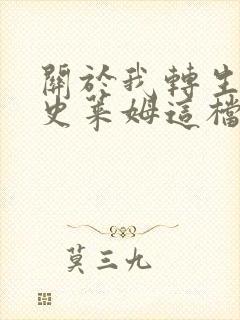 關於我轉生
史萊姆這檔
莫三九